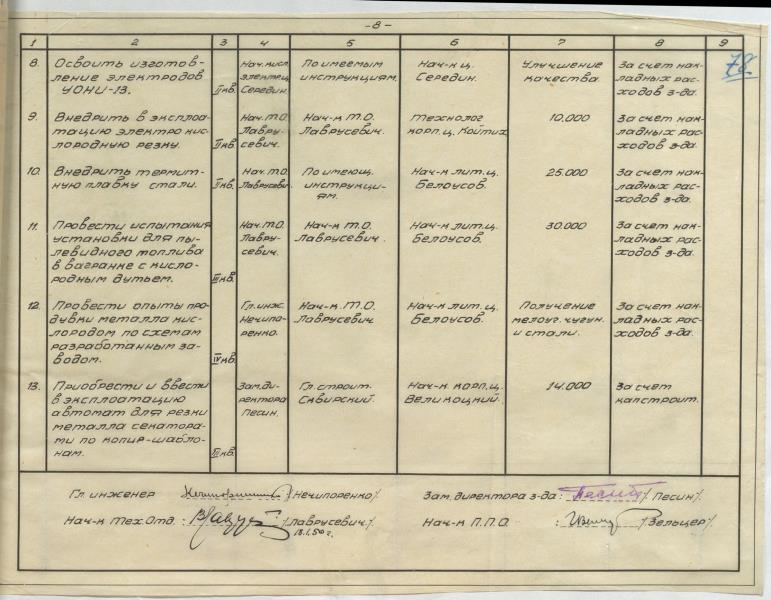 -8-
78.
1 2 3 4 5 6 7 8 9
8. Освоить изготов-
ление электродов
УОНИ-13.
II кв.
Нач. кисл.
электец.
Середин.
По имеемым
инструкциям.
Нач-к ц.
Середин.
Улучшение
качества.
За счет нак-
ладных рас-
ходов з-да.
9. Внедрить в эксплоа-
тацию электро кис-
лородную резку.
II кв.
Нач. Т.О.
Лавру-
севич.
Нач-к Т.О.
Лаврусевич.
Технолог
корп. ц. Койтих
10.000
За счет нак-
ладных рас-
ходов з-да.
10. Внедрить термит-
ную плавку стали.
II кв.
Нач. Т.О.
Лаврусевич.
По имеющ.
инструкци-
ям.
Нач-к лит. ц.
Белоусов.
25.000
За счет нак-
ладных рас-
ходов з-да.
11. Провести испытания
установки для пы-
левидного топлива
в вагранке с кисло-
родным дутьем.
III кв.
Нач. Т.О.
Лавру-
севич.
Нач-к Т.О.
Лаврусевич.
Нач-к лит. ц.
Белоусов.
30.000
За счет нак-
ладных рас-
ходов з-да.
12. Провести опыты про-
дувки металла кис-
лородом по схемам
разработанным за-
водом.
IV кв.
Гл. инж.
Нечипо-
ренко.
Нач-к Т.О.
Лаврусевич.
Нач-к лит. ц.
Белоусов.
Получение
мелоуг. чугун.
и стали.
За счет нак-
ладных рас-
ходов з-да.
13. Приобрести и ввести
в эксплоатацию
автомат для резки
металла секатора-
ми по копир-шабло-
нам.
III кв.
Зам. ди-
ректора
Песин.
Гл. строит.
Сквирский.
Нач-к корп. ц.
Великоцкий.
14.000
За счет
капстроит.
Гл. инженер /Нечипоренко/.
Зам. директора з-да: Песин /Песин/.
Нач-к Тех. Отд.: /Лаврусевич/.
18.I.50 г.
Нач-к П.П.О. : /Зельцер/.